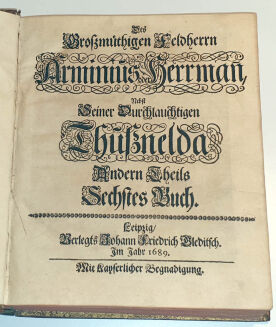 Des
Großmüthigen Feldherrn
Arminius Herrman,
Nebst
Seiner Durchlauchtigen
Thußnelda
Andern Theils
Sechstes Buch.
Leipzig/
Verlegts Johann Friedrich Gleditsch.
Im Jahr 1689.
Mit Kayserlicher Begnadigung.